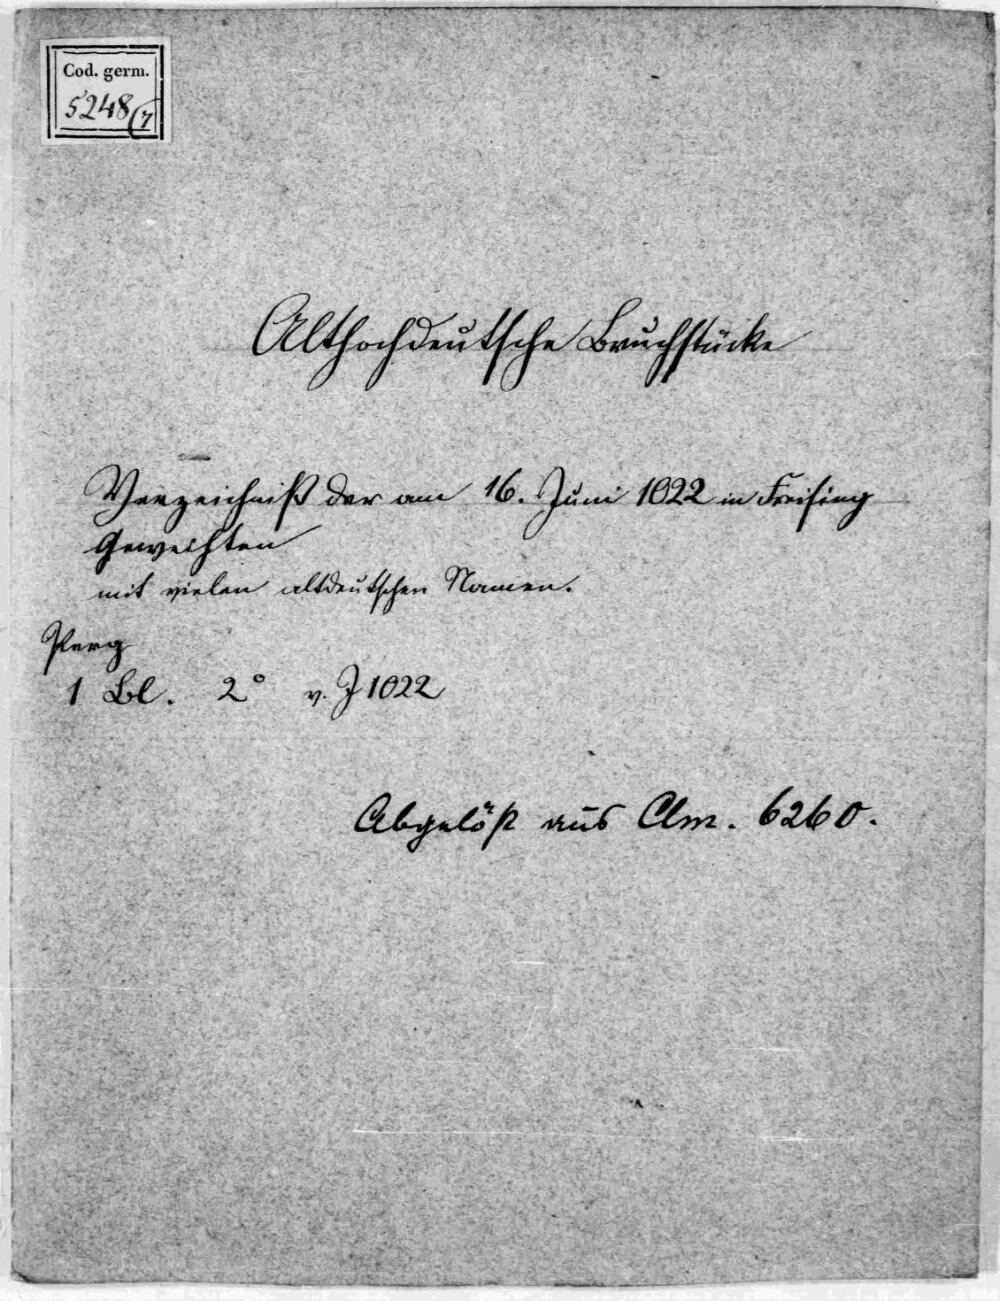 Cod. germ.
5248(7
Althochdeutsche Bruchstücke
Verzeichniß der am 16. Juni 1022 in Freising
Geweihten
mit vielen altdeutschen Namen.
Perg
1 Bl. 2° v. J 1022
Abgelöst aus Clm. 6260.